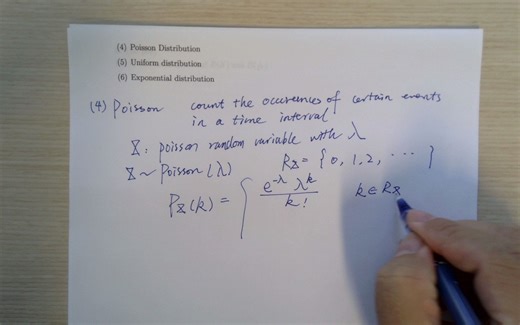 (4) Poisson Distribution
(5) Uniform distribution
(6) Exponential distribution
(4) Poisson count the occurences of certain events
in a time interval
X : poisson random variable with λ
X ~ Poisson(λ) R_X = { 0, 1, 2, ··· }
P_X(k) = { e^{-λ} λ^k / k! k ∈ R_X